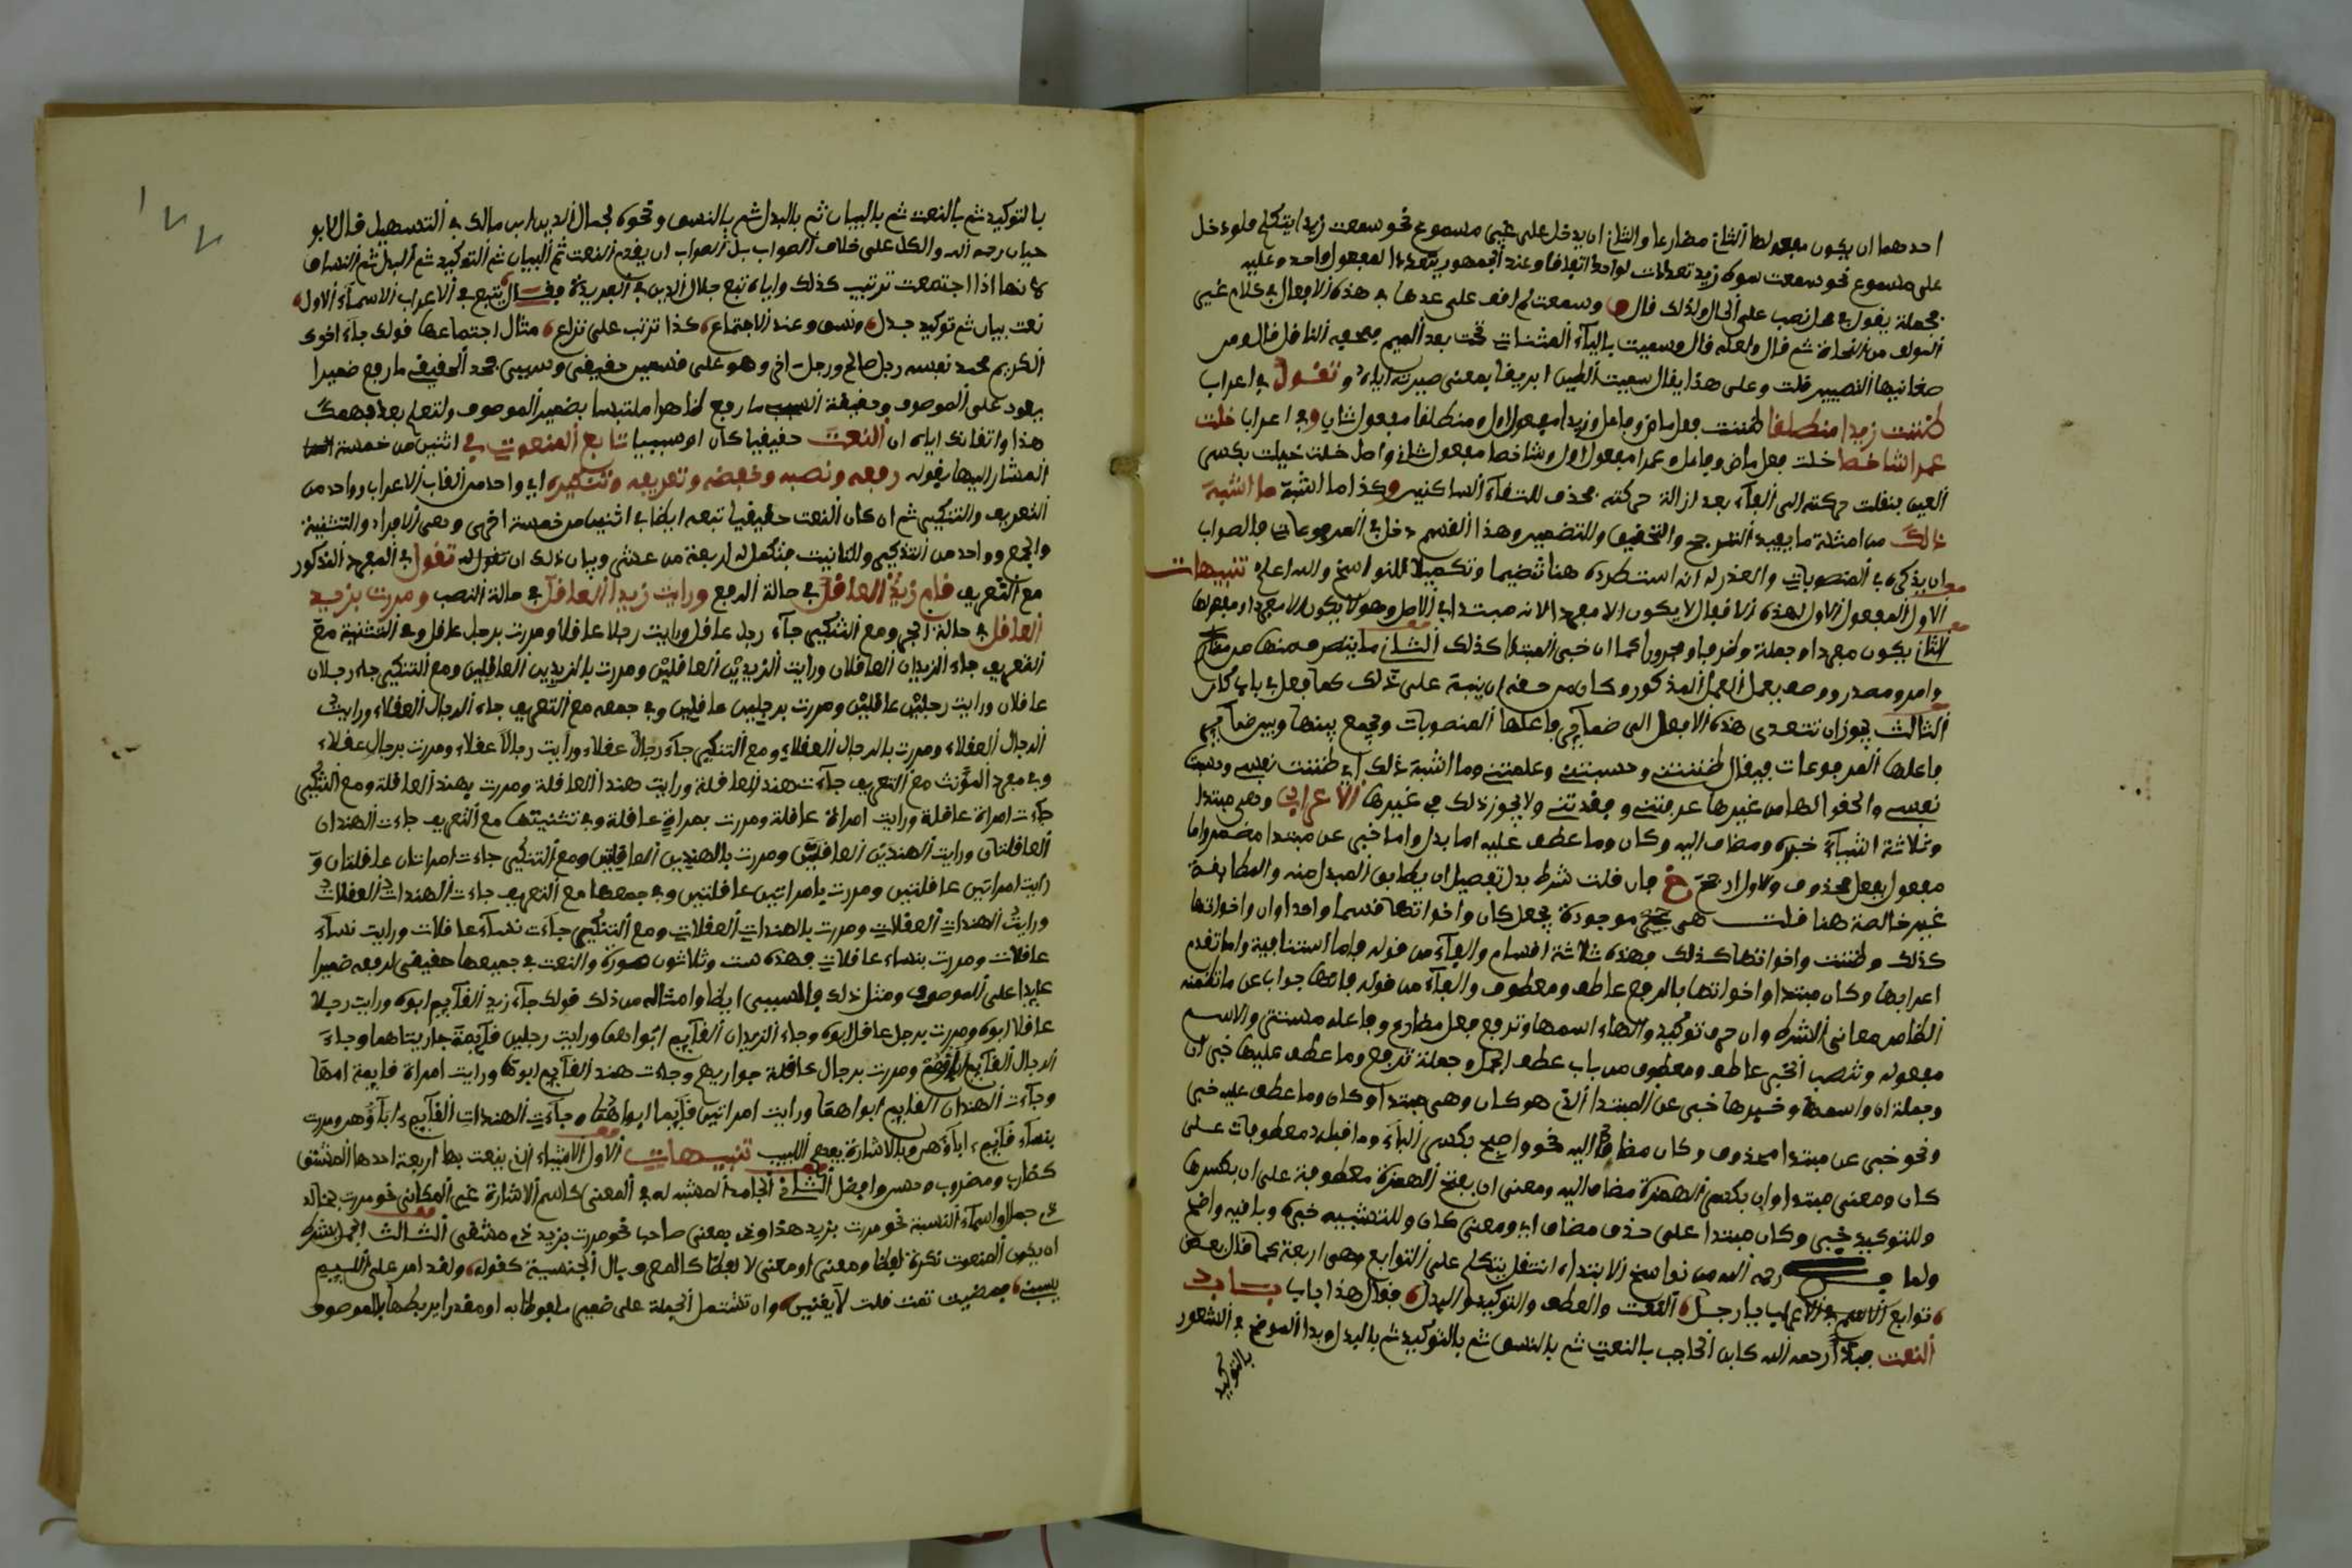 احدهما ان يكون مفعولها الثاني مضارعا والثاني ان يدخل على غير مسموع نحو سمعت زيدا يتكلم فلو دخل
على مسموع نحو سمعت سوط زيد تعدت لواحد اتفاقا وعند الجمهور تتعدى لمفعول واحد وعليه
فجملة يقول في محل نصب على الحال ولذلك قال وسمعت لم اقف على عدها في هذه الافعال في كلام غير
المؤلف من النحاة ثم قال ولعله قال وسميت بالياء المثنات تحت بعد الميم فصحفه الناقل قال ومن
معانيها التصيير قلت وعلى هذا يقال سميت الطين ابريقا بمعنى صيرته اياه وتقول في اعراب
ظننت زيدا منطلقا ظننت فعل ماض وفاعل وزيدا مفعول اول ومنطلقا مفعول ثاني وفي اعراب خلت
عمرا شاخصا خلت فعل ماض وفاعل وعمرا مفعول اول وشاخصا مفعول ثاني واصل خلت خيلت بكسر
العين بنقلت حركته الى الفاء بعد ازالة حركته فحذف للتقاء الساكنين وكذا ما اشبه ما اشبه
ذلك من امثلة ما يفيد الترجيح والتحقيق وللتصيير وهذا القسم دخل في المرفوعات فالصواب
ان يذكره في المنصوبات والعذر له انه استطرده هنا تتميما وتكميلا للنواسخ والله اعلم تنبيهات
الاول المفعول الاول لهذه الافعال لا يكون الا مفردا لانه مبتدا في الاصل وهو لا يكون الا مفردا ومفعولها
الثاني يكون مفردا وجملة وظرفا ومجرورا كما ان خبر المبتدا كذلك الثاني ما يتصرف منها من مضارع
وامر ومصدر ووصف يعمل العمل المذكور وكان من حقه ان ينبه على ذلك كما فعل في باب كان
الثالث يجوز ان تتعدى هذه الافعال الى ضمائر فاعلها المنصوبات ويجمع بينها وبين ضمائر
فاعلها المرفوعات فيقال ظننتني وحسبتني وعلمتني وما اشبه ذلك اي ظننت نفسي وحسبت
نفسي والحقوا لها من غيرها عدمتني وفقدتني ولا يجوز ذلك في غيرها الاعراب وهي مبتدا
وثلاثة اشياء خبره ومضاف اليه وكان وما عطف عليه اما بدل واما خبر عن مبتدا مضمر واما
مفعول بفعل محذوف والاول ارجح فان قلت شرط بدل تفصيل ان يطابق المبدل منه والمطابقة
غير خالصة هنا قلت هي موجودة بجعل كان واخواتها قسما واحدا وان واخواتها
كذلك وظننت واخواتها كذلك فهذه ثلاثة اقسام والفاء من قوله فاما استنافية واما تقدم
اعرابها وكان مبتدا واخواتها بالرفع عاطف ومعطوف والفاء من قوله فانها جواب عن ما تضمنه
الظاهر معاني الشرط وان حرف توكيد والهاء اسمها وترفع فعل مضارع وفاعله مستتر والاسم
مفعوله وتنصب الخبر عاطف ومعطوف من باب عطف الجمل وجملة ترفع وما عطف عليها خبر ان
وجملة ان واسمها وخبرها خبر عن المبتدا الذي هو كان وهي مبتدا وكان وما عطف عليه خبر
ونحو خبر عن مبتدا محذوف وكان مضاف اليه نحو واصبح بكسر الباء وما قبله معطوفات على
كان ومعنى مبتدا وان بكسر الهمزة مضاف اليه ومعنى ان بفتح الهمزة معطوفة على ان بكسرها
وللتوكيد خبر وكان مبتدا على حذف مضاف اي ومعنى كان وللتشبيه خبره وباقيه واضح
ولما رحمه الله من نواسخ الابتداء انتقل يتكلم على التوابع وهي اربعة كما قال بعض
توابع الاسم في الاعراب يا رجل النعت والعطف والتوكيد والبدل فقال هذا باب باب
النعت رحمه الله كابن الحاجب بالنعت ثم بالنسق ثم بالتوكيد ثم بالبدل وبدا الموضح في الشعور
بالتوكيد
١٧٧
بالتوكيد ثم بالنعت ثم بالبيان ثم بالبدل ثم بالنسق ونحوه لجمال الدين ابن مالك في التسهيل قال ابو
حيان رحمه الله والكل على خلاف الصواب بل الصواب ان يقدم النعت ثم البيان ثم التوكيد ثم البدل ثم النسق
لانها اذا اجتمعت ترتيب كذلك واياه تبع جلال الدين في الفريدة فقال يتبع في الاعراب الاسماء الاول
نعت بيان ثم توكيد بدل ونسق وعند الاجتماع كذا ترتب على نزاع مثال اجتماعها قولك جاء اخوك
الكريم محمد نفسه رجل صالح ورجل اخر وهو على قسمين حقيقي وسببي فحد الحقيقي ما رفع ضميرا
يعود على الموصوف وحقيقة السببي ما رفع ظاهرا ملتبسا بضمير الموصوف ولتعلم بعد فهمك
هذا واتقانك اياه ان النعت حقيقيا كان او سببيا تابع المنعوت في اثنين من خمسة
المشار اليها بقوله رفعه ونصبه وخفضه وتعريفه وتنكيره اي واحد من القاب الاعراب وواحد من
التعريف والتنكير ثم ان كان النعت حقيقيا تبعه ايضا في اثنين من خمسة اخرى وهي الافراد والتثنية
والجمع وواحد من التذكير والتانيث فتكمل له اربعة من عشر وبيان ذلك ان تقول له تقول في المفرد المذكور
مع التعريف قام زيد العاقل في حالة الرفع ورايت زيدا العاقل في حالة النصب ومررت بزيد
العاقل في حالة الجر ومع التنكير جاء رجل عاقل ورايت رجلا عاقلا ومررت برجل عاقل وفي التثنية مع
التعريف جاء الزيدان العاقلان ورايت الزيدين العاقلين ومررت بالزيدين العاقلين ومع التنكير جاء رجلان
عاقلان ورايت رجلين عاقلين ومررت برجلين عاقلين وفي جمعه مع التعريف جاء الرجال العقلاء ورايت
الرجال العقلاء ومررت بالرجال العقلاء ومع التنكير جاء رجال عقلاء ورايت رجالا عقلاء ومررت برجال عقلاء
وفي مفرد المؤنث مع التعريف جاءت هند العاقلة ورايت هندا العاقلة ومررت بهند العاقلة ومع التنكير
جاءت امراة عاقلة ورايت امراة عاقلة ومررت بمراة عاقلة وفي تثنيتها مع التعريف جاءت الهندان
العاقلتان ورايت الهندين العاقلتين ومررت بالهندين العاقلتين ومع التنكير جاءت امراتان عاقلتان و
رايت امراتين عاقلتين ومررت بامراتين عاقلتين وفي جمعها مع التعريف جاءت الهندات العقلات
ورايت الهندات العقلات ومررت بالهندات العقلات ومع التنكير جاءت نساء عاقلات ورايت نساء
عاقلات ومررت بنساء عاقلات فهذه ست وثلاثون صورة والنعت في جميعها حقيقي لرفعه ضميرا
عايدا على الموصوف ومثل ذلك في السببي ايضا وامثاله من ذلك قولك جاء زيد القايم ابوه ورايت رجلا
عاقلا ابوه ومررت برجل عاقل ابوه وجاء الزيدان القايم ابواهما ورايت رجلين قايمة جاريتاهما وجاء
الرجال القايم اباؤهم ومررت برجال عاقلة جواريهم وجاءت هند القايم ابوها ورايت امراة قايمة امها
وجاءت الهندان القايم ابواهما ورايت امراتين قايما ابواهما وجاءت الهندات القايم اباؤهن ومررت
بنساء قايم اباؤهن وبالاشارة يفهم اللبيب تنبيهات الاول الاشياء التي ينعت بها اربعة احدها المشتق
كضارب ومضروب وحسن وافضل الثاني الجامد المشبه له في المعنى كاسم الاشارة غير المكاني نحو مررت بخالد
واسماء النسبة نحو مررت بزيد هذا وذي بمعنى صاحب نحو مررت بزيد ذي مشقى الثالث الجمل بشرط
ان يكون المنعوت نكرة لفظا ومعنى او معنى لا لفظا كالمعرف بال الجنسية كقوله ولقد امر على اللئيم
يسبني فمضيت ثمت قلت لا يعنيني وان تشتمل الجملة على ضمير ملفوظ به او مقدر يربطها بالموصوف